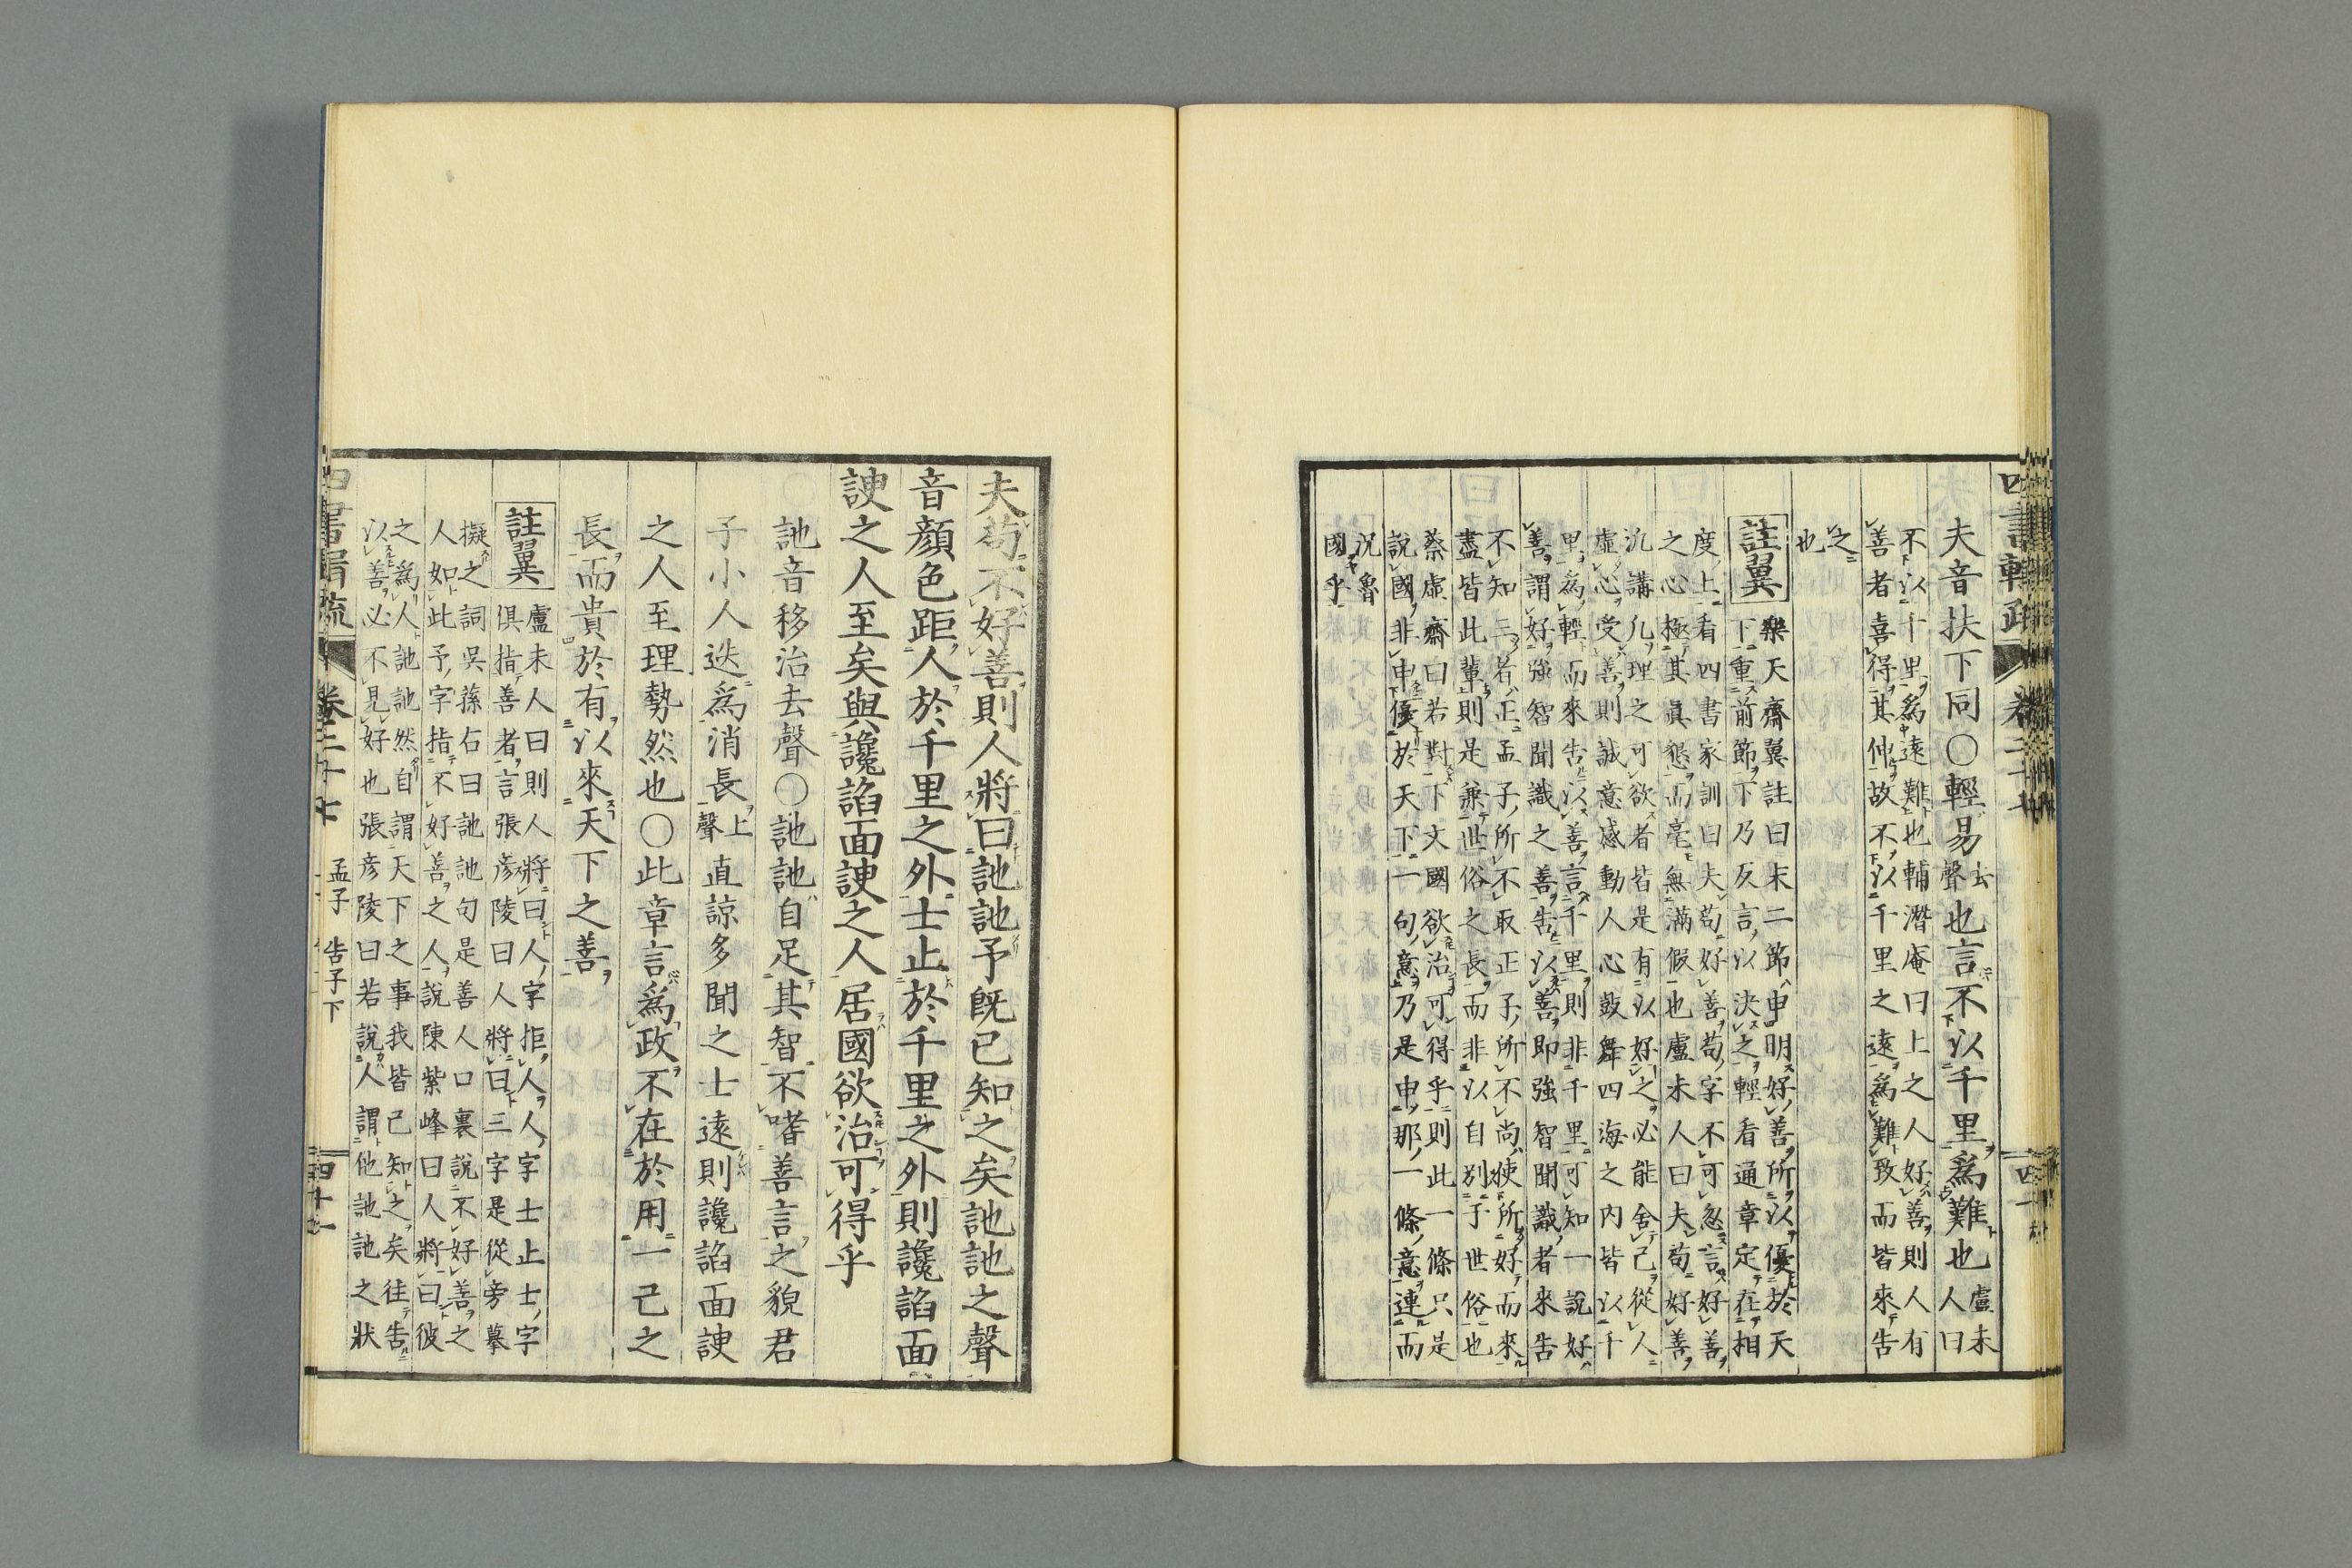 四書輯疏 卷二十七
夫音扶下同〇輕易
去
聲
也言不以千里爲難也
盧未
人曰
不以千里爲遠難也輔潛庵曰上之人好善則人有
善者喜得其伸故不以千里之遠爲難致而皆來告
之
也
註翼
樂天齋翼註曰末二節申明好善所以優於天
下重前節下乃反言以決之輕看通章定在相
度上看四書家訓曰夫苟好善苟字不可忽言好善
之心極其眞懇而毫無滿假也盧未人曰夫苟好善
汎講凡理之可欲者皆是有以好之必能舍己從人
虛心受善則誠意感動人心鼓舞四海之內皆以千
里爲輕而來告以善言千里則非千里可知一說好
善謂好強智聞識之善告以善即強智聞識者來告
不知三者正孟子所不取正子所不尚使所好而來
盡皆此輩則是兼世俗之長而非以自别于世俗也
蔡虛齋曰若對下文國欲治可得乎則此一條只是
說國非申優於天下一句意乃是申那一條意連而
況魯
國乎
夫苟不好善則人將曰訑訑予旣已知之矣訑訑之聲
音顏色距人於千里之外士止於千里之外則讒諂面
諛之人至矣與讒諂面諛之人居國欲治可得乎
訑音移治去聲〇訑訑自足其智不嗜善言之貌君
子小人迭爲消長
上
聲
直諒多聞之士遠則讒諂面諛
之人至理勢然也〇此章言爲政不在於用一己之
長而貴於有以來天下之善
註翼
盧未人曰則人將曰人字拒人人字士止士字
俱指善者言張彦陵曰人將曰三字是從旁摹
擬之詞吳蓀右曰訑訑句是善人口裏說不好善之
人如此予字指不好善之人說陳紫峰曰人將曰彼
之爲人訑訑然自謂天下之事我皆已知之矣往告
以善必不見好也張彦陵曰若說人謂他訑訑之狀
四書輯疏 卷二十七 孟子 告子下 四十一